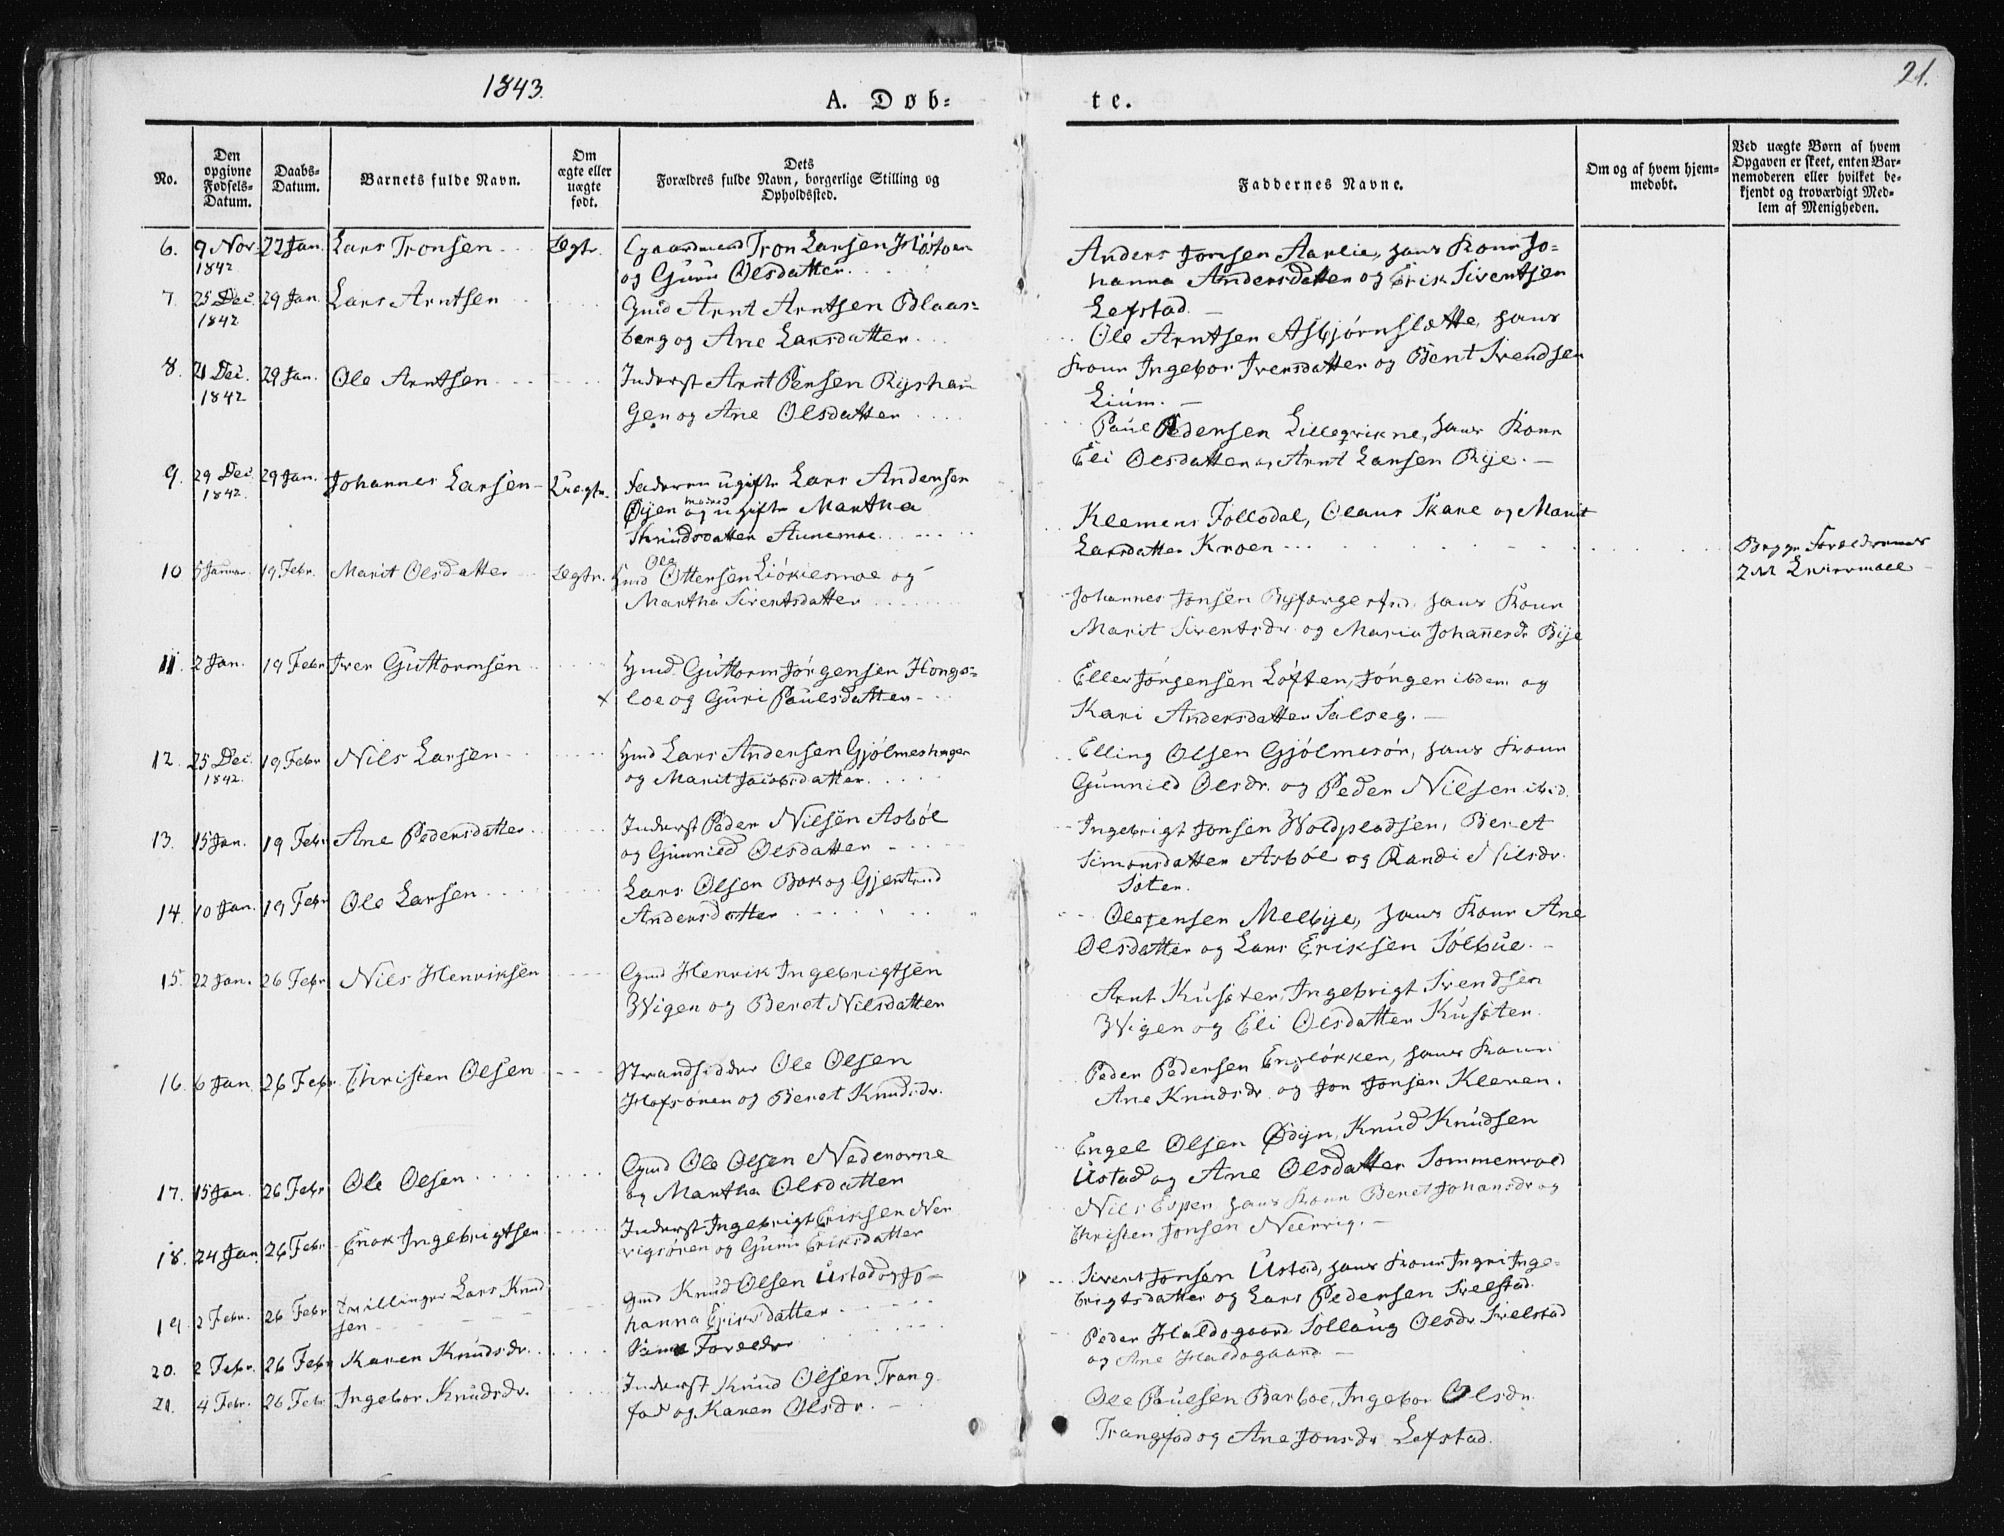 1843.
A. Døb-
te.
21.
No.
Den opgivne Fødsels-Datum.
Daabs-Datum.
Barnets fulde Navn.
Om ægte eller uægte født.
Dets Forældres fulde Navn, borgerlige Stilling og Opholdssted.
Faddernes Navne.
Om og af hvem hjemmedøbt.
Ved uægte Børn af hvem Opgaven er skeet, enten Barnemoderen eller hvilket bekjendt og troværdigt Medlem af Menigheden.
6. 9 Nov. 22 Jan. Lars Tronsen Ægte. Gaardmand Tron Larsen
1842 og Guru Olsdatter.
Anders Jonsen Aarlie, hans Kone Jo-
hanna Andersdatter og Erik Siventsen
Lefstad.
7. 25 Dec. 29 Jan. Lars Arntsen Gmd Arnt Arntsen Blaas-
1842 berg og Ane Larsdatter.
Ole Arntsen Asbjørnslætte, hans
Kone Ingebor Iversdatter og Bent Svendsen
Lium.
8. 21 Dec. 29 Jan. Ole Arntsen Inderst Arnt Persen Ryshau
1842 gen og Ane Olsdatter
Paul Pedersen Lillegvikne, hans Kone
Eli Olsdatter og Arnt Larsen Rye.
9. 29 Dec. 29 Jan. Johannes Larsen Uægte. Faderen ugifte Lars Andersen
1842. Øyen og ugifte Martha
Knudsdatter Aunemoe
Klemens Follodal, Olaus Skare og Marit
Larsdatter Kroen
10 5 Januar 19 Febr. Marit Olsdatter Ægte. Hmd Ole Ottersen Liøkiesmoe og
Martha Siventsdatter
Johannes Jonsen hans Kone
Marit Siventsdr og Maria Johannesdr Bye
11. 2 Jan. 19 Febr Iver Guttormsen Hmd. Guttorm Jørgensen Hongs-
x loe og Guri Paulsdatter
Eller Jørgensen Løften, Jørgen ibdem og
Kari Andersdatter Salseg.
12. 25 Dec. 19 Febr Nils Larsen Hmd Lars Andersen Gjølmeshagen
1842. og Marit Jacobsdatter.
Elling Olsen Gjølmesør, hans Kone
Gunnild Olsdr. og Peder Nilsen ibid.
13. 15 Jan. 19 Febr Ane Pedersdatter Inderst Peder Nilsen Asbøl
og Gunnild Olsdatter
Ingebrigt Jonsen Woldpladsen, Beret
Simonsdatter Asbøl og Randi Nilsdr.
Sæter.
14. 10 Jan. 19 Febr Ole Larsen Lars Olsen Bak og Gjertrud
Andersdatter
Ole Jensen Melbye, hans Kone Ane
Olsdatter og Lars Eriksen Solbue.
15. 22 Jan. 26 Febr Nils Henriksen Gmd Henrik Ingebrigtsen
Wigen og Beret Nilsdatter
Arnt Kusæter, Ingebrigt Svendsen
Wigen og Eli Olsdatter Kusæter.
16. 6 Jan 26 Febr. Christen Olsen Strandsidder Ole Olsen
Hofsøren og Beret Knudsdr.
Peder Pedersen Engløkken, hans Kone
Ane Knudsdr. og Jon Jonsen Kleven.
17. 15 Jan. 26 Febr Ole Olsen Gmd Ole Olsen Nedenovne
og Martha Olsdatter
Engel Olsen Ødyn, Knud Knudsen
Ustad og Ane Olsdatter Sommervold
18. 24 Jan. 26 Febr Enok Ingebrigtsen Inderst Ingebrigt Eriksen Ner
vigsøren og Guru Eriksdatter
Nils Espen hans Kone Beret Johansdr og
Christen Jonsen Nervig.
19. 2 Febr. 26 Febr Tvillinger Lars Knud
sen
Gmd Knud Olsen Ustad og Jo-
hanna Eriksdatter
Sivert Jonsen Ustad, hans Kone Ingri Inge-
brigtsdatter og Lars Pedersen Svelstad.
20. 2 Febr. 26 Febr Karen Knudsdr. Samme Foreldre
Peder Haldogaard Sollaug Olsdr Svelstad
og Ane Haldogaard
21. 4 Febr. 26 Febr Ingebor Knudsdr. Inderst Knud Olsen Trang
fod og Karen Olsdr.
Ole Paulsen Barboe, Ingebor Olsdr.
Trangfod og Ane Jonsdr Lefstad.